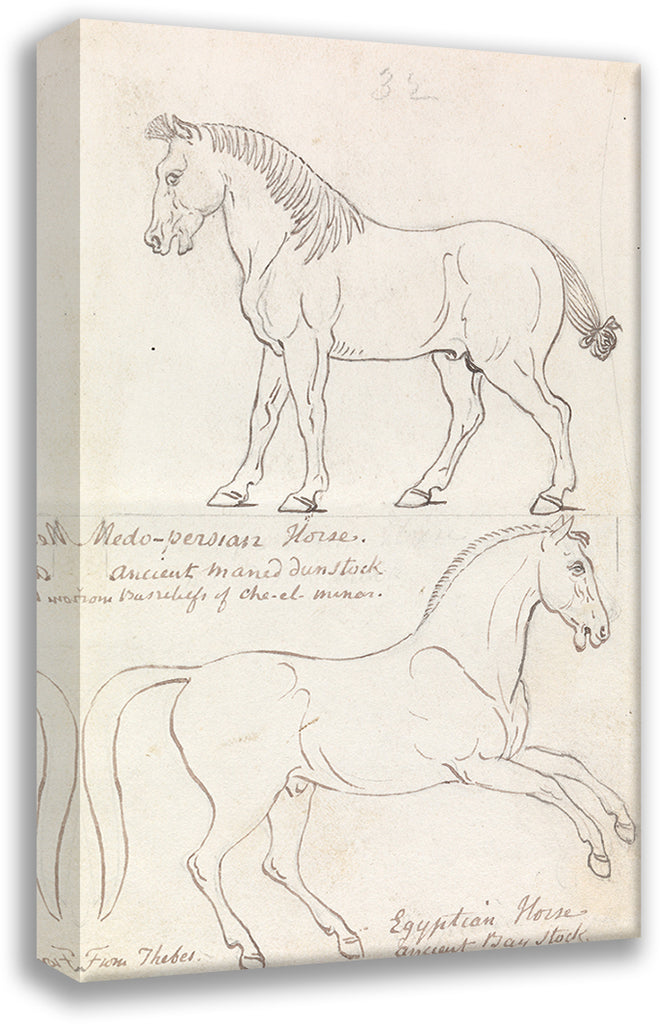 32
Medo-persian Horse.
ancient maned dun stock
from Basreliefs of che-el-minar.
Egyptian Horse
ancient Bay stock.
From Thebes.